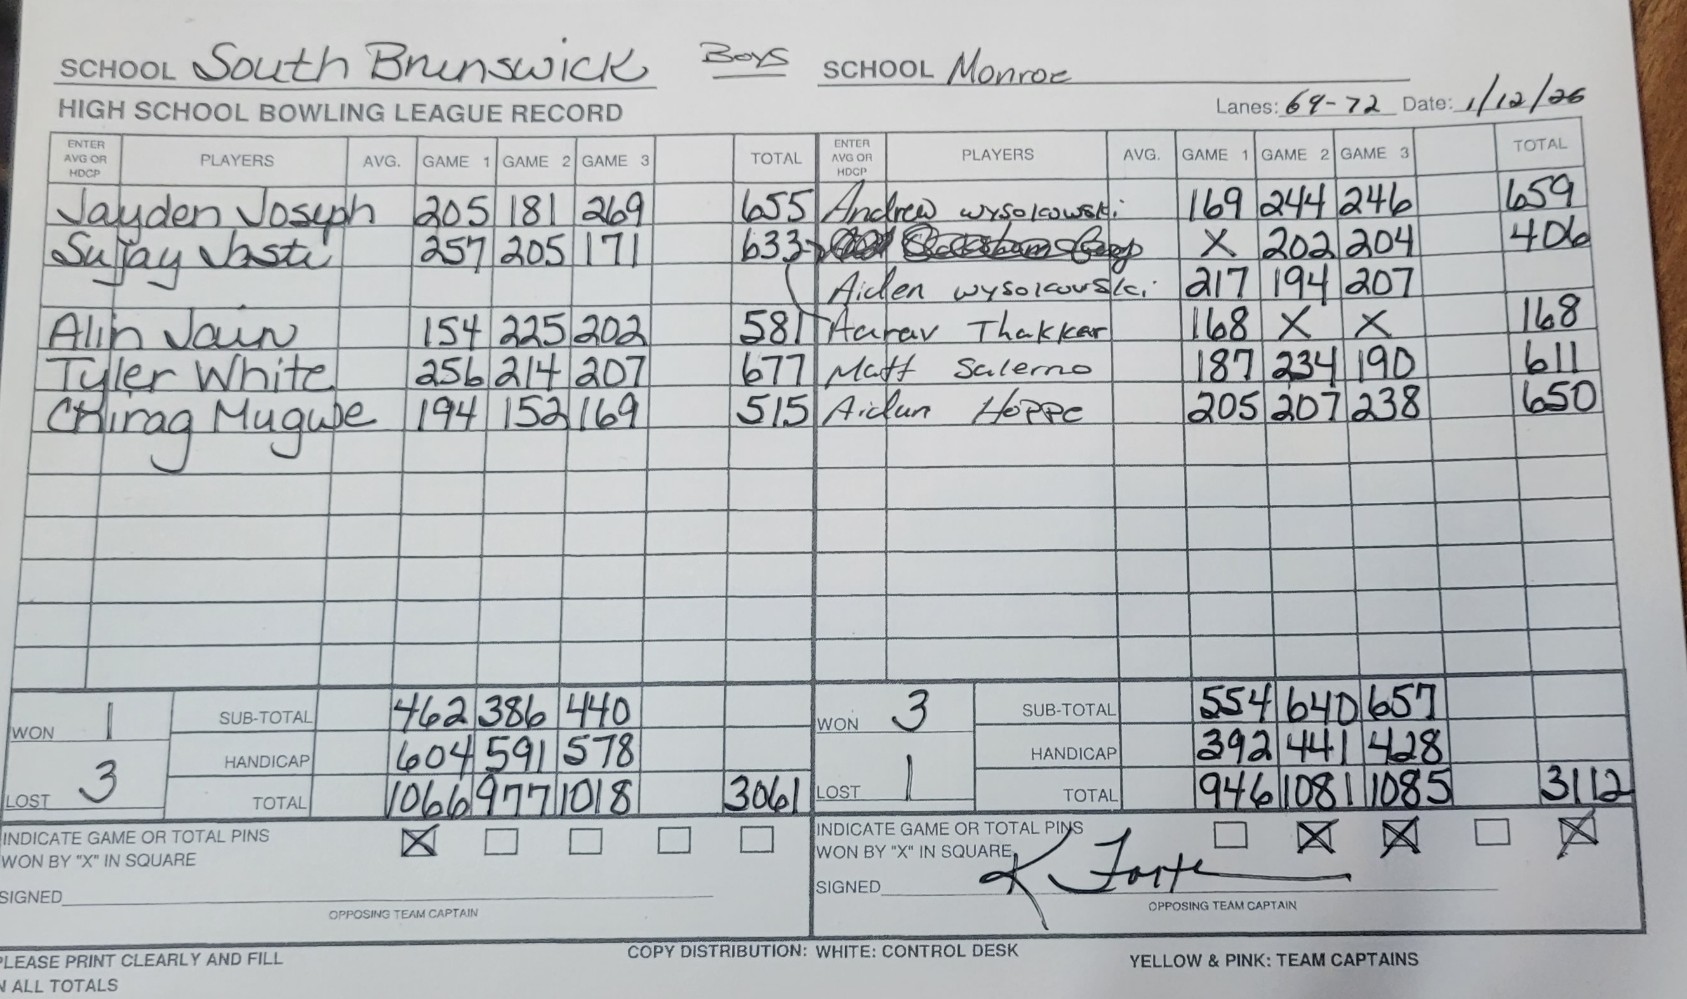 SCHOOL South Brunswick Boys SCHOOL Monroe
HIGH SCHOOL BOWLING LEAGUE RECORD Lanes: 69-72 Date: 1/12/26
ENTER AVG OR HDCP PLAYERS AVG. GAME 1 GAME 2 GAME 3 TOTAL ENTER AVG OR HDCP PLAYERS AVG. GAME 1 GAME 2 GAME 3 TOTAL
Jayden Joseph 205 181 269 655 Andrew Wysolcowski 169 244 246 659
Sujay Vasti 257 205 171 633 X 202 204 406
Aiden Wysolcowski 217 194 207
Alin Jain 154 225 202 581 Aarav Thakkar 168 X X 168
Tyler White 256 214 207 677 Matt Salerno 187 234 190 611
Chirag Mugwe 194 152 169 515 Aidan Hoppe 205 207 238 650
WON 1 SUB-TOTAL 462 386 440 WON 3 SUB-TOTAL 554 640 657
HANDICAP 604 591 578 HANDICAP 392 441 428
LOST 3 TOTAL 1066 977 1018 3061 LOST 1 TOTAL 946 1081 1085 3112
INDICATE GAME OR TOTAL PINS X INDICATE GAME OR TOTAL PINS X X X
WON BY "X" IN SQUARE WON BY "X" IN SQUARE
SIGNED SIGNED K Forte
OPPOSING TEAM CAPTAIN OPPOSING TEAM CAPTAIN
PLEASE PRINT CLEARLY AND FILL COPY DISTRIBUTION: WHITE: CONTROL DESK YELLOW & PINK: TEAM CAPTAINS
IN ALL TOTALS